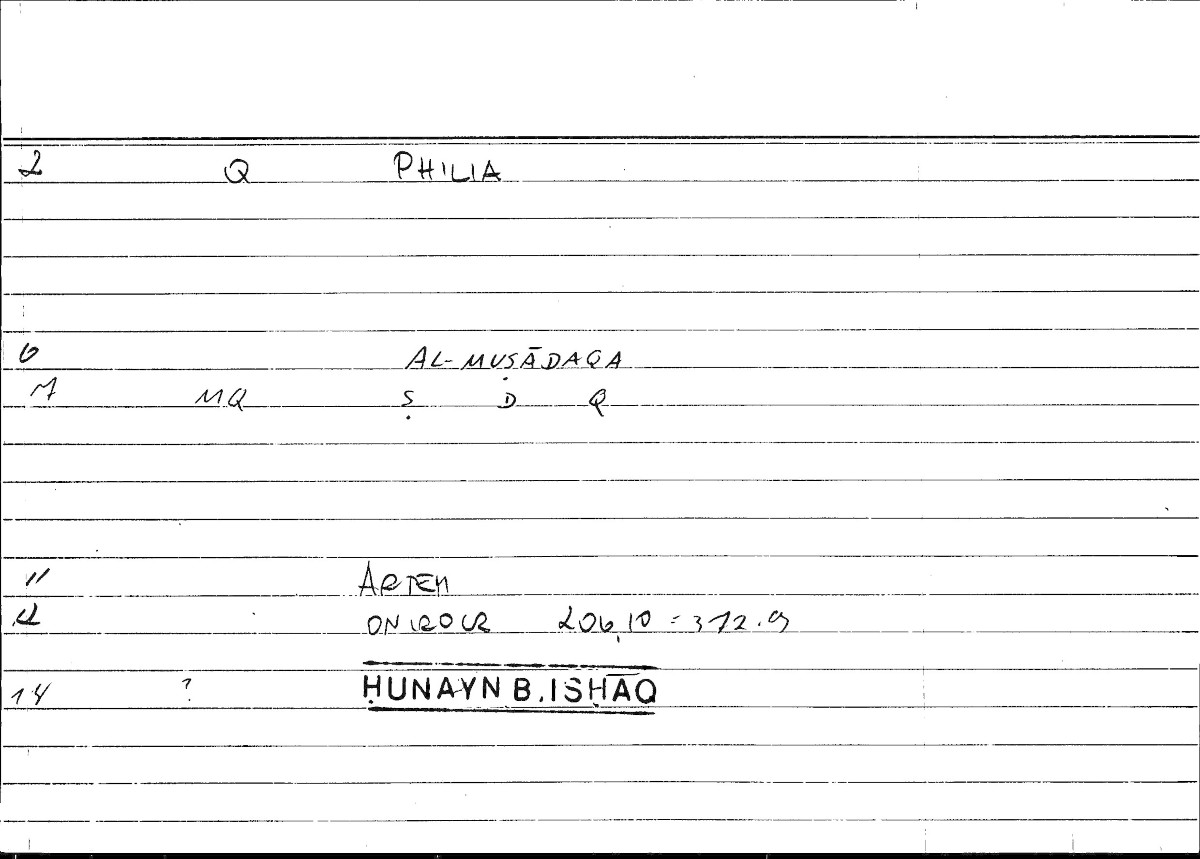 2 Q PHILIA
6 AL-MUṢĀDAQA
7 MQ Ṣ D Q
11 ARTEM
12 ONIROCR 206,10 = 372.9
14 ? ḤUNAYN B. ISḤĀQ